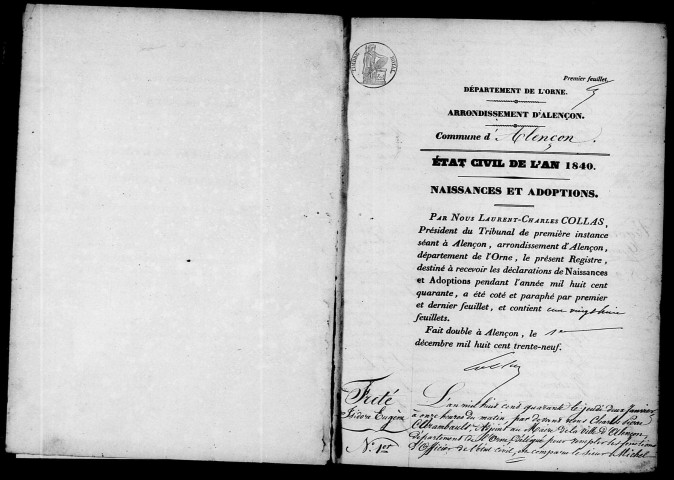 TIMBRE ROYAL
Premier feuillet.
DÉPARTEMENT DE L'ORNE.
ARRONDISSEMENT D'ALENÇON.
Commune d'Alençon.
ÉTAT CIVIL DE L'AN 1840.
NAISSANCES ET ADOPTIONS.
PAR NOUS LAURENT-CHARLES COLLAS,
Président du Tribunal de première instance
séant à Alençon, arrondissement d'Alençon,
département de l'Orne, le présent Registre,
destiné à recevoir les déclarations de Naissances
et Adoptions pendant l'année mil huit cent
quarante, a été coté et paraphé par premier
et dernier feuillet, et contient cent vingt huit
feuillets.
Fait double à Alençon, le 1er
décembre mil huit cent trente-neuf.
Freté
Isidore Eugène
N.º 1er
L'an mil huit cent quarante le jeudi deux Janvier
à onze heures du matin, par devant nous Charles Pierre
Adjoint au Maire de la Ville d'Alençon
département de l'Orne, délégué pour remplir les fonctions
d'Officier de l'état civil, est comparu le sieur Michel